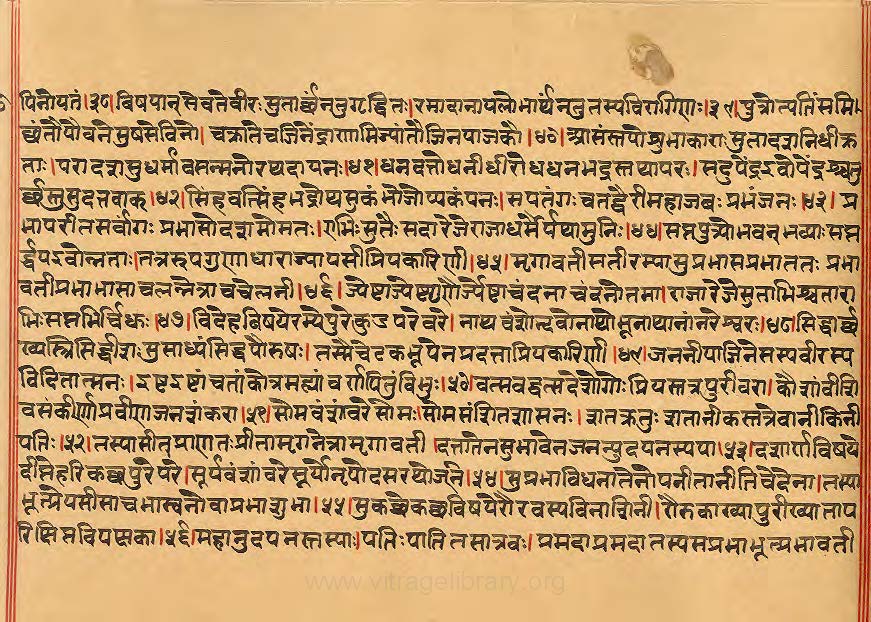 पिनोयतं।३८।विषयान् सेवतेवीरः सुतार्थं न तु गृद्धितः।रमादानापलोभार्थं न तु तस्यविरागिणः।३९।पुत्रोत्पतिं समि
छंतौयौवनेसुषसेविनौ।चक्रातेचजिनेंद्राणामिज्यांतौजिनयाजकौ।४०।आसंस्तयोशुभाकाराःसुतादशनिधीकृ
ताः।परादशसुधर्मावसन्मनोरथदायनः।४१।धनदत्तोधनीधीरोधधनभद्रस्तथापरः।सदुपेंद्रऽवोपेंद्रश्चतु
र्थस्तुसुदत्तवाक्।४२।सिंहवत्सिंहभद्रोथसुकंभोजोप्यकंपनः।सपतंगःचतद्वैरीमहाजवःप्रभंजनः।४३।प्र
भापरीतसर्वांगःप्रभासोदशमोमतः।एभिःसुतैःसदारेजेराजाधर्मैर्यथामुनिः।४४।सप्तपुत्र्योभवन्भव्याःसप्त
र्द्धयऽवोत्नताः।तत्ररूपगुणाधाराज्यायसीप्रियकारिणी।४५।मृगावतीसतीरस्यासुप्रभासप्रभाततःप्रभा
वतीप्रभाभासाचलन्नेत्राचचेलनी।४६।ज्येष्टाज्येष्टगुणैर्ज्येष्टाचंदनाचंदनोतमा।राजारेजेसुताभिश्चतारा
भिःसप्तभिर्विधुः।४७।विदेहविषयेरम्येपुरेकुंडपरेवरे।नाथवंशोद्भवोनाथोभूनाथानांनरेश्वरः।४८।सिद्धार्थ
ख्यस्त्रिसिद्धीशःसुसाध्यंसिद्धपौरुषः।तस्मैचेटकभूपेनप्रदत्ताप्रियकारिणी।४९।जननीयाजिनेसस्यवीरस्य
विदितात्मनः।ऽष्टऽष्टांचतांकोत्रमह्यांवर्णयितुंविभुः।५०।वत्सवद्वत्सदेशोगोःप्रियस्तत्रपुरीवरा।कौशांवीशि
वसंकीर्णाप्रवीणाजनशंकरा।५१।सोमवंशांवरेसोमःसोमसंशितशासनः।शतक्रतुःशतानीकस्तत्रैवानीकिनी
पतिः।५२।तस्यासीत्प्राणतःप्रीतामृगनेत्रामृगावती।दत्तातेनसुभावेनजनन्युदयनस्यया।५३।दशार्णविषये
दीप्तेहरिकछपुरेपरे।सूर्यवंशांवरेसूर्योनृपोदसरथोर्जने।५४।सुप्रभाविधनातेनोपनीतानीतिवेदेना।तस्या
भूत्प्रेयसीसाचभास्वनोवाप्रभाशुभा।५५।सुकछेकछविषयेरौरवस्यविनाशिनी।रौरुकाख्यापुरीख्याताप
रिक्षिप्तविपक्षका।५६।महानुदयनस्तस्याःपतिःपातितसात्रवः।प्रमदाप्रमदातस्यसप्रभाभूत्प्रभावती
www.vitragelibrary.org